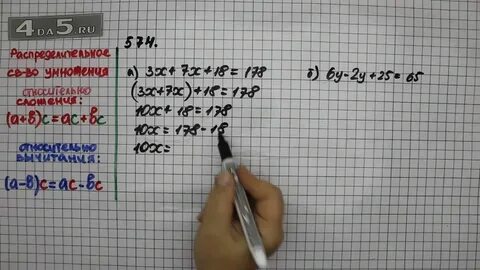 4DA5.RU
Распределительное
св-во умножения
относительно
сложения:
(a+b)c=ac+bc
относительно
вычитания:
(a-b)c=ac-bc
574.
а) 3x+7x+18=178
(3x+7x)+18=178
10x+18=178
10x=178-18
10x=
б) 6y-2y+25=65